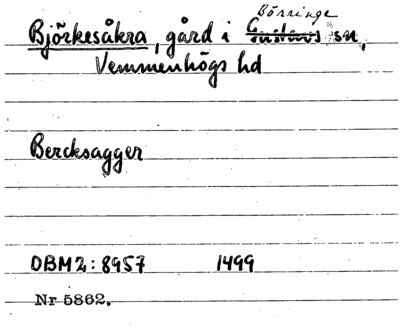 Börringe
Björkesåkra, gård i Gustavs sn,
Vemmenhögs hd
Bercksagger
DBM2:8957 1499
Nr 5862.